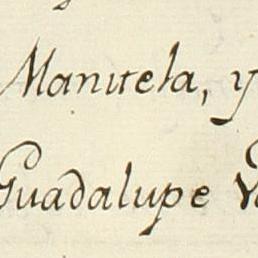 Manuela, y
Guadalupe